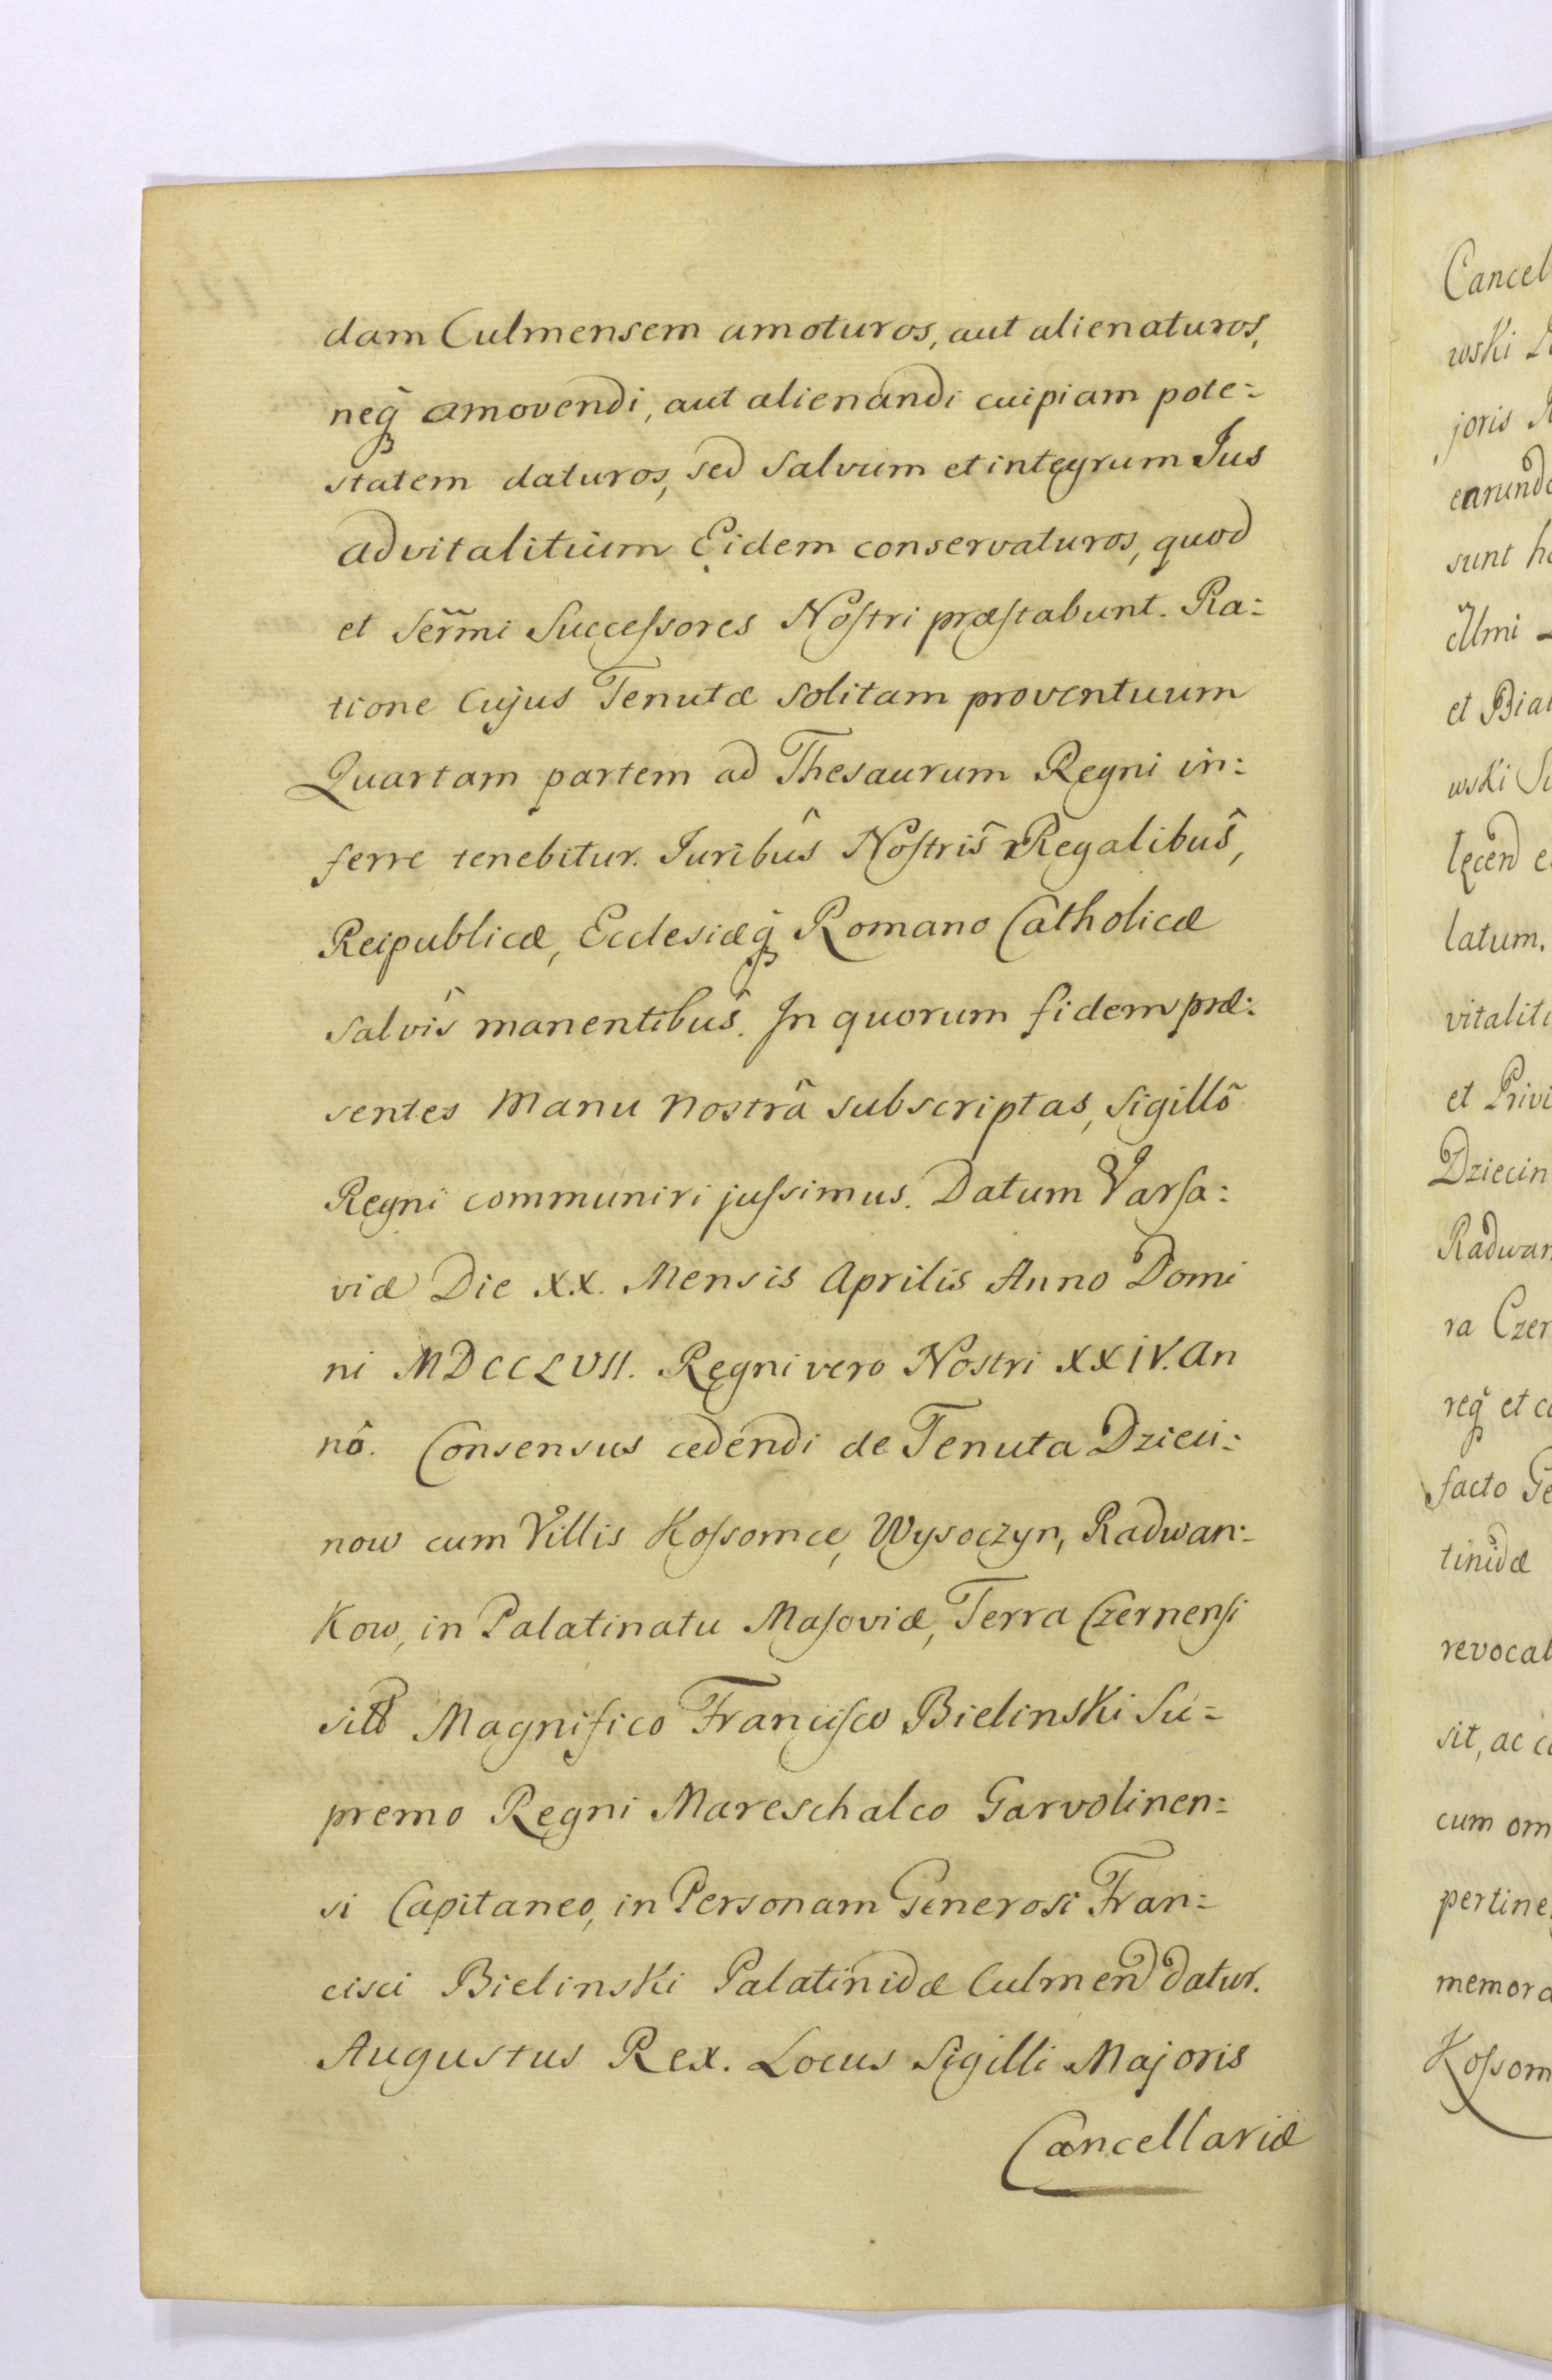 dam Culmensem amoturos, aut alienaturos,
neq́ꝫ amovendi, aut alienandi cuipiam pote=
statem daturos, sed salvum et integrum Jus
advitalitium Eidem conservaturos, quod
et Ser̃mi Succeſsores Noſtri præſtabunt. Ra=
tione Cujus Tenutæ solitam proventuum
Quartam partem ad Thesaurum Regni in=
ferre tenebitur. Juribuŝ Noſtriŝ Regalibuŝ,
Reipublicæ, Ecclesiæq́ꝫ Romano Catholicæ
salviŝ manentibuŝ. In quorum fidem præ=
sentes Manu Nostrâ subscriptas, Sigillô
Regni communiri juſsimus. Datum Varſa=
viæ Die XX. Mensis Aprilis Anno Domi
ni MDCCLVII. Regni vero Nostri XXIV. An
nô. Consensus cedendi de Tenuta Dzieci=
now cum Villis Koſsomce, Wysoczyn, Radwan=
Kow, in Palatinatu Maſoviæ, Terra Czernenſi
Magnifico Franciſco Bielinski Su=
premo Regni Mareschalco Garvolinen=
si Capitaneo, in Personam Generosi Fran=
cisci Bielinski Palatinidæ Culmen̄ datur.
Augustus Rex. Locus Sigilli Majoris
Cancellariæ
Cancel
wski
joris
sunt
et
wski
latum.
et Privi
Dziecin
Radwan
ra Czer
req́ꝫ et
facto
tinidæ
revocal
sit, ac
cum om
pertine
memora
Koſsom